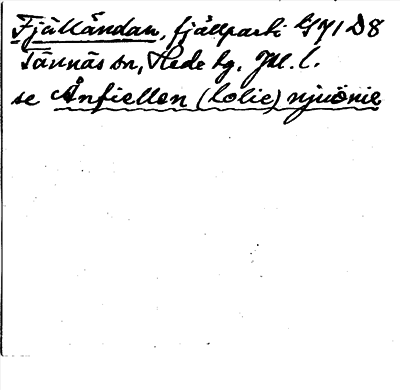 Fjälländan, fjällparti GY1 D8
Tännäs sn, Hede hg. JM. l.
se Ånfiellen (Lolie) njuönie